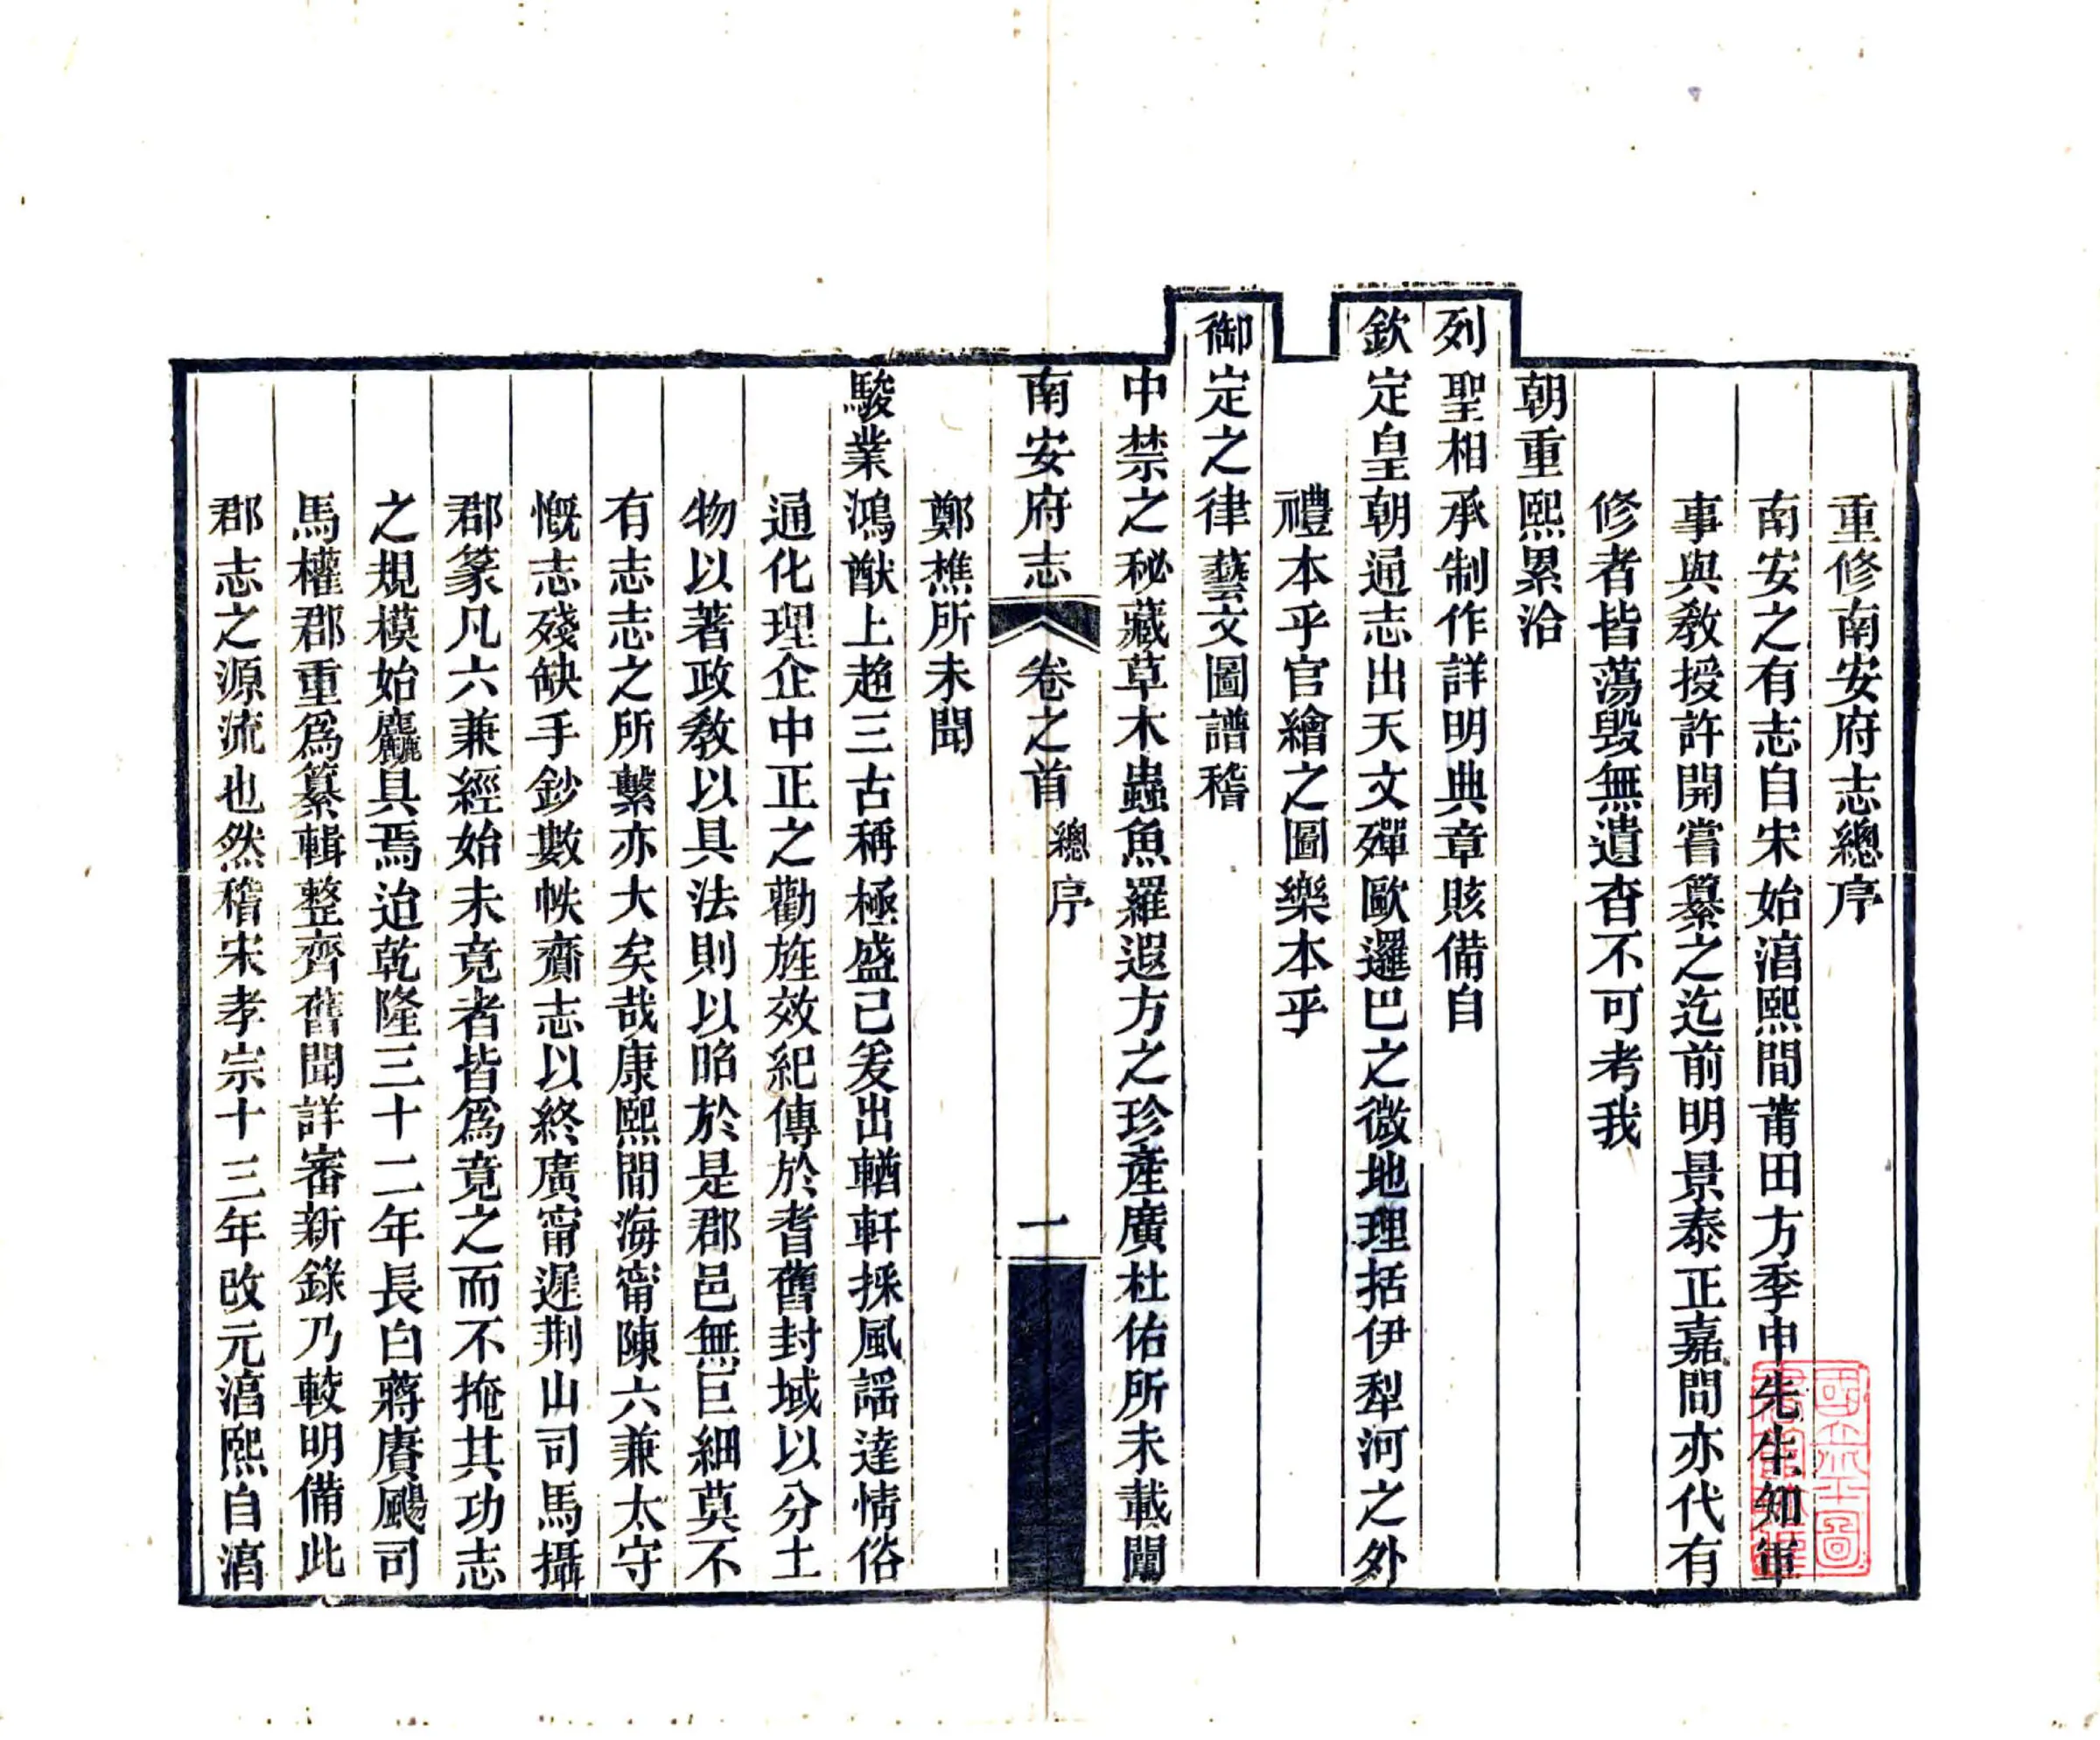 重修南安府志總序
南安之有志自宋始湻熙間莆田方季申先生知軍
事與教授許開嘗纂之迄前明景泰正嘉間亦代有
修者皆蕩毁無遺杳不可考我
朝重熙累洽
列聖相承制作詳明典章賅備自
欽定皇朝通志出天文殫歐邏巴之微地理括伊犁河之外
禮本乎官繪之圖樂本乎
御定之律藝文圖譜稽
中禁之秘藏草木蟲魚羅遐方之珍產廣杜佑所未載闡
南安府志 卷之首 總序 一
鄭樵所未聞
駿業鴻猷上趨三古稱極盛已爰出輶軒採風謡達情俗
通化理企中正之勸旌效紀傳於耆舊封域以分土
物以著政教以具法則以昭於是郡邑無巨細莫不
有志志之所繫亦大矣哉康熙間海甯陳六兼太守
慨志殘缺手鈔數帙齎志以終廣甯遲荆山司馬攝
郡篆凡六兼經始未竟者皆爲竟之而不掩其功志
之規模始麤具焉迨乾隆三十二年長白蔣賡颺司
馬權郡重爲纂輯整齊舊聞詳審新錄乃較明備此
郡志之源流也然稽宋孝宗十三年改元湻熙自湻